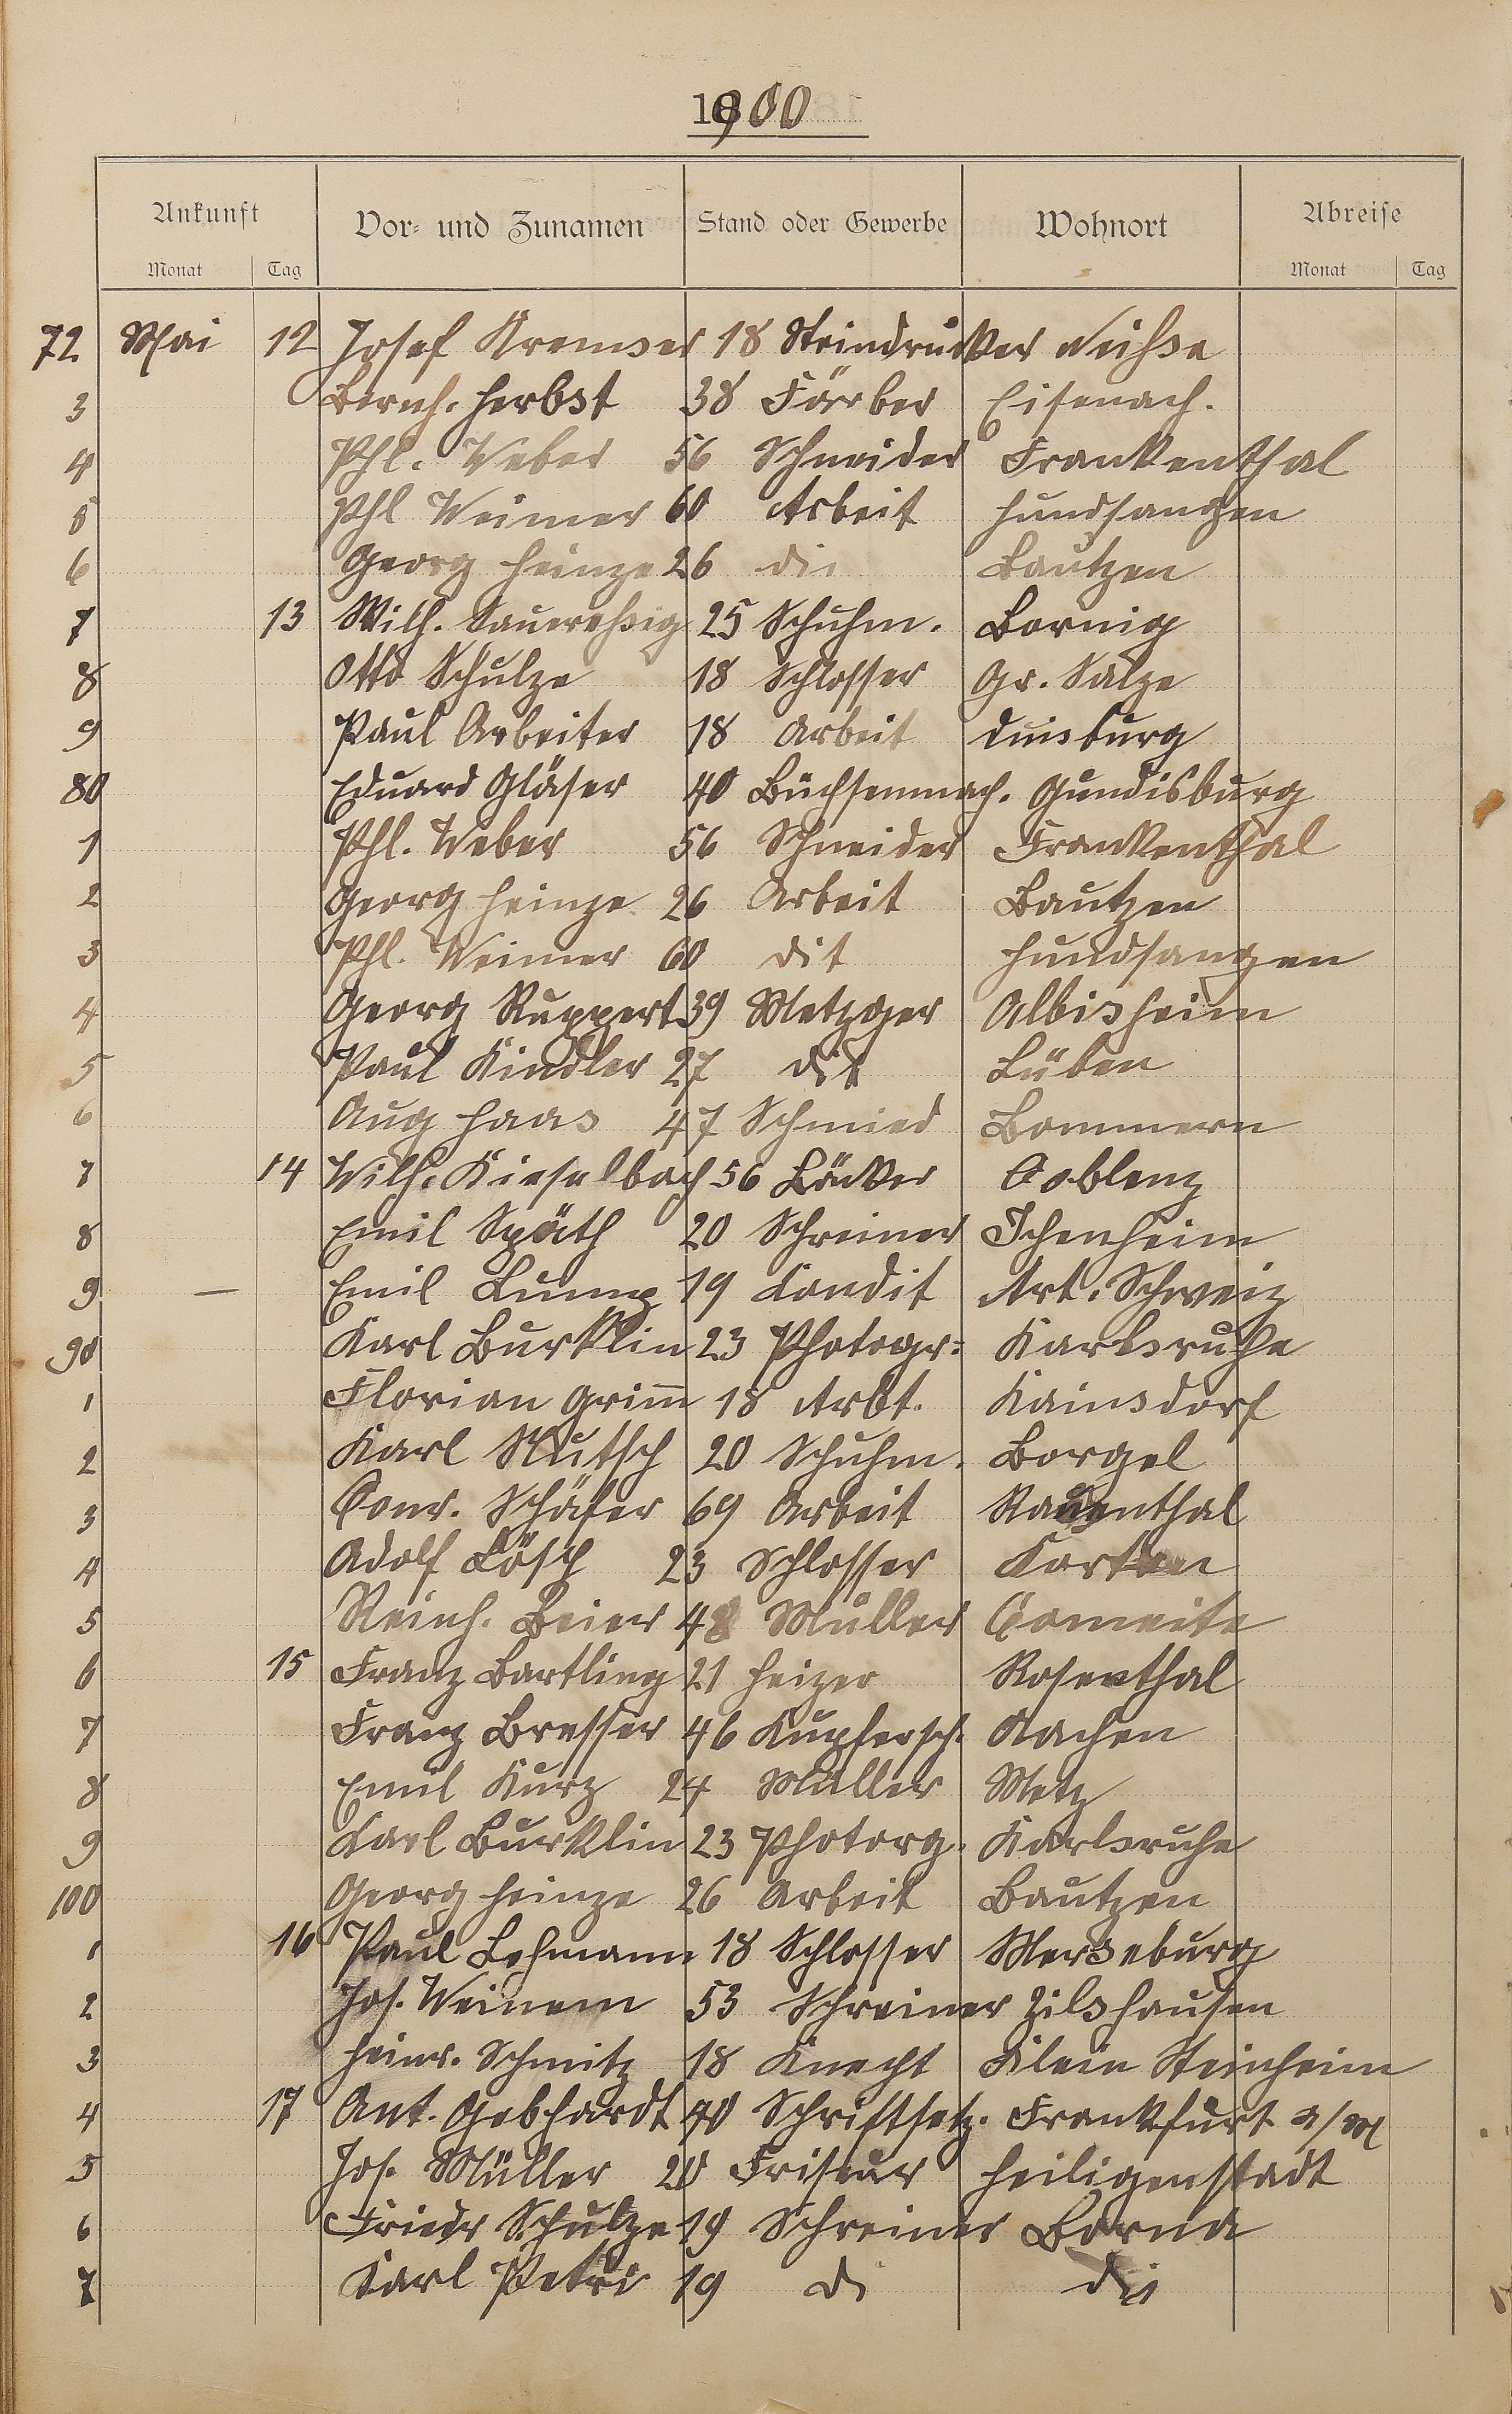 1900
Ankunft Vor- und Zunamen Stand oder Gewerbe Wohnort Abreise
Monat Tag Monat Tag
72 Mai 12 Josef Kremser 18 Steindrucker Neisse
3 Bernh. Herbst 38 Färber Eisenach.
4 Phl. Weber 56 Schneider Frankenthal
5 Phl Weimer 60 Arbeit Hundsangen
6 Georg Heinze 26 di Bautzen
7 13 Wilh. Sauereßig 25 Schuhm. Bornig
8 Otto Schulze 18 Schlosser Gr. Salze
9 Paul Arbeiter 18 Arbeit Duisburg
80 Eduard Gläser 40 Büchsenmach. Gundisburg
1 Phl. Weber 56 Schneider Frankenthal
2 Georg Heinze 26 Arbeit Bautzen
3 Phl. Weimer 60 dit Hundsangen
4 Georg Ruppert 39 Metzger Albisheim
5 Paul Kindler 27 dit Lüben
6 Aug Haas 47 Schmied Bommern
7 14 Wilh. Kieselbach 56 Bäcker Coblenz
8 Emil Späth 20 Schreiner Ichenheim
9 — Emil 19 Condit Art. Schweiz
90 Karl Burklin 23 Photogr: Karlsruhe
1 Florian Grim̅ 18 Arbt. Kainsdorf
2 Karl Nutsch 20 Schuhm. Borgel
3 Conr. Schäfer 69 Arbeit Rauenthal
4 Adolf Lösch 23 Schlosser
5 Reinh. Beier 48 Müller
6 15 Franz Bartling 21 Heizer Rosenthal
7 Franz Bresser 46 Kupfersch. Aachen
8 Emil Kurz 24 Müller Metz
9 Karl Burklin 23 Photorg. Karlsruhe
100 Georg Heinze 26 Arbeit Bautzen
1 16 Paul Lehmann 18 Schlosser Merseburg
2 Jos. Weinem 53 Schreiner Zilshausen
3 Heinr. Schmitz 18 Knecht Klein Steinheim
4 17 Ant. Gebhardt 40 Schriftsetz. Frankfurt a/M
5 Jos. Müller 20 Friseur Heiligenstadt
6 Friedr Schulze 19 Schreiner Borna
7 Karl Petri 19 di di